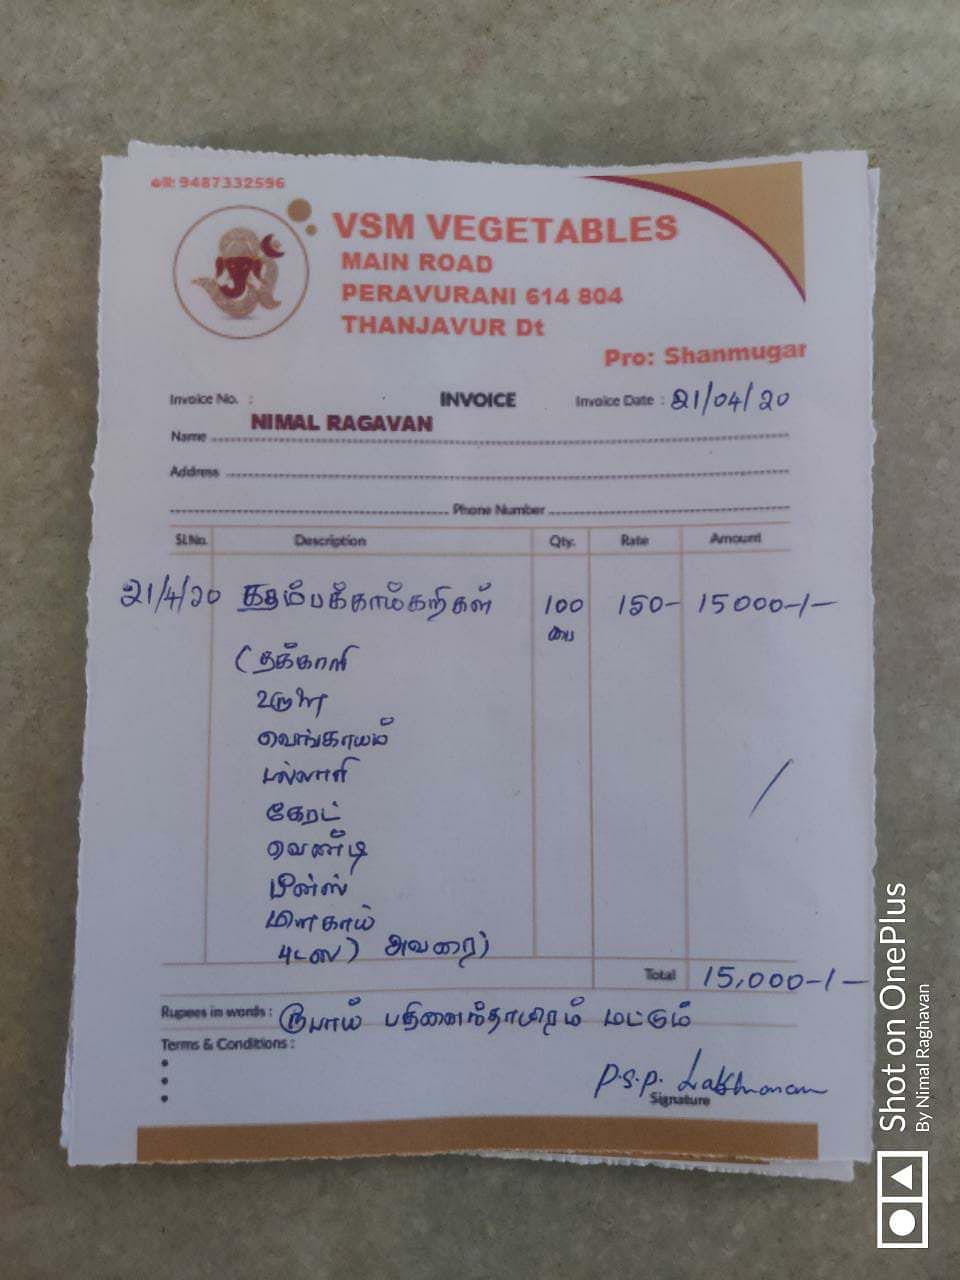 செல்: 9487332596
VSM VEGETABLES
MAIN ROAD
PERAVURANI 614 804
THANJAVUR Dt
Pro: Shanmugar
Invoice No. :
INVOICE
Invoice Date : 21/04/20
Name NIMAL RAGAVAN
Address
Phone Number
Sl.No. Description Qty. Rate Amount
21/4/20 கதம்பக்காய்கறிகள் 100 150- 15000-/-
பை
(தக்காளி
உருளை
வெங்காயம்
பல்லாரி
கேரட்
வெண்டி
பீன்ஸ்
மிளகாய்
அவரை)
Total 15,000-/-
Rupees in words : ரூபாய் பதினைந்தாயிரம் மட்டும்
Terms & Conditions :
P.S.P. Lakshmanan
Signature
Shot on OnePlus
By Nimal Raghavan